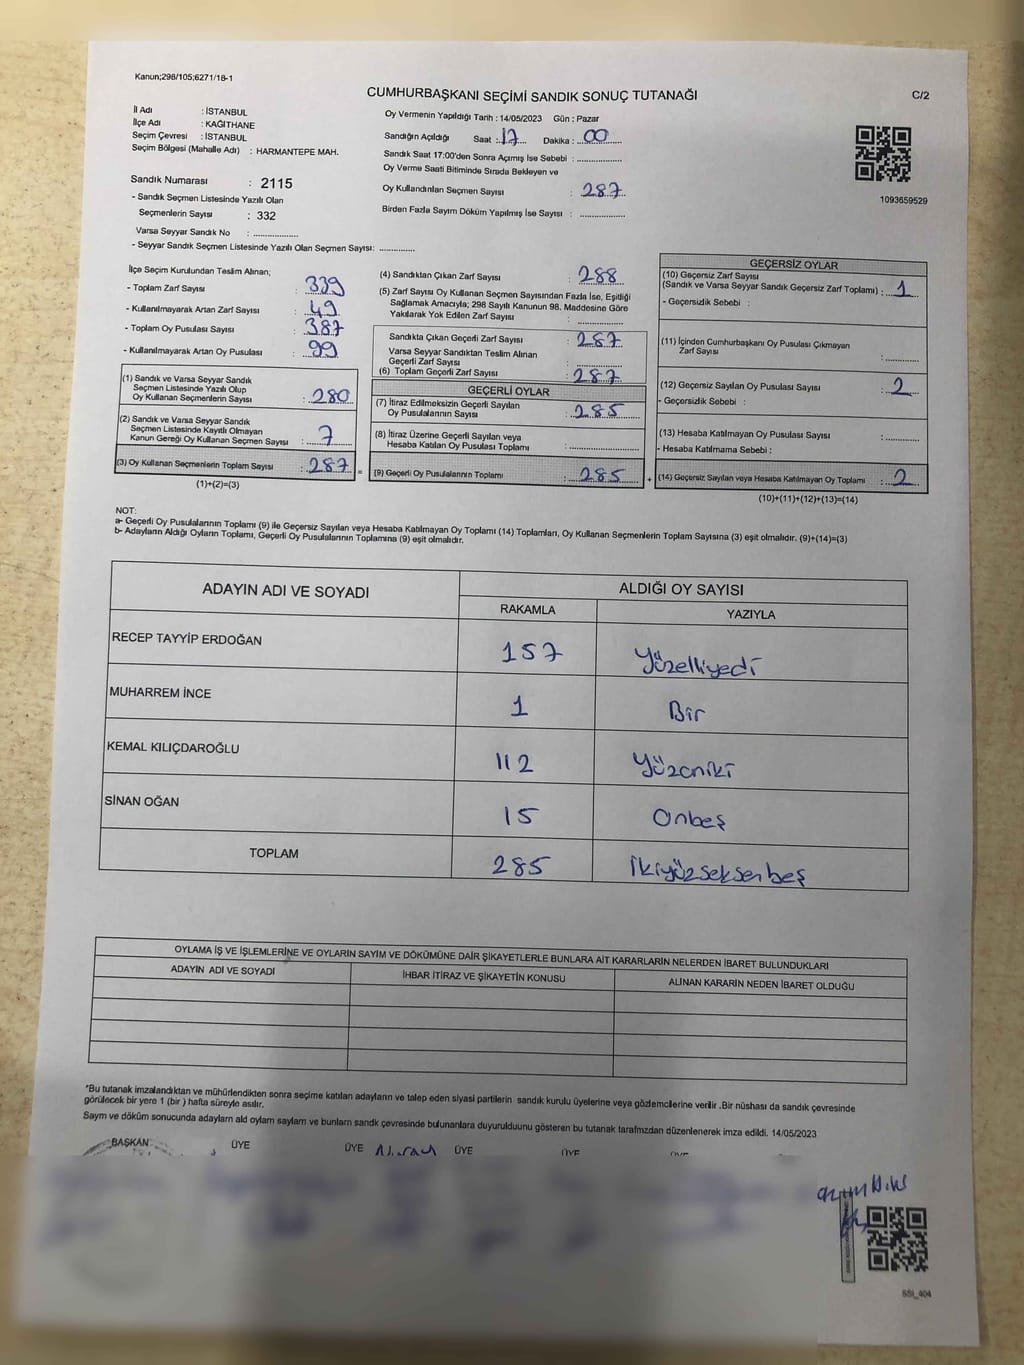 Kanun;298/105;6271/18-1
CUMHURBAŞKANI SEÇİMİ SANDIK SONUÇ TUTANAĞI
C/2
İl Adı : İSTANBUL
İlçe Adı : KAĞITHANE
Seçim Çevresi : İSTANBUL
Seçim Bölgesi (Mahalle Adı) : HARMANTEPE MAH.
Sandık Numarası : 2115
- Sandık Seçmen Listesinde Yazılı Olan
Seçmenlerin Sayısı : 332
Varsa Seyyar Sandık No : ....................
- Seyyar Sandık Seçmen Listesinde Yazılı Olan Seçmen Sayısı: ...............
Oy Vermenin Yapıldığı Tarih : 14/05/2023 Gün : Pazar
Sandığın Açıldığı Saat : 17 Dakika : 00
Sandık Saat 17:00'den Sonra Açımış İse Sebebi : ...............
Oy Verme Saati Bitiminde Sırada Bekleyen ve
Oy Kullandırılan Seçmen Sayısı : 287
Birden Fazla Sayım Döküm Yapılmış İse Sayısı : ...............
1093659529
İlçe Seçim Kurulundan Teslim Alınan;
- Toplam Zarf Sayısı : 339
- Kullanılmayarak Artan Zarf Sayısı : 49
- Toplam Oy Pusulası Sayısı : 387
- Kullanılmayarak Artan Oy Pusulası : 99
(1) Sandık ve Varsa Seyyar Sandık
Seçmen Listesinde Yazılı Olup
Oy Kullanan Seçmenlerin Sayısı : 280
(2) Sandık ve Varsa Seyyar Sandık
Seçmen Listesinde Kayıtlı Olmayan
Kanun Gereği Oy Kullanan Seçmen Sayısı : 7
(3) Oy Kullanan Seçmenlerin Toplam Sayısı : 287 =
(1)+(2)=(3)
(4) Sandıktan Çıkan Zarf Sayısı : 288
(5) Zarf Sayısı Oy Kullanan Seçmen Sayısından Fazla İse, Eşitliği
Sağlamak Amacıyla; 298 Sayılı Kanunun 98. Maddesine Göre
Yakılarak Yok Edilen Zarf Sayısı : ...............
Sandıkta Çıkan Geçerli Zarf Sayısı : 287
Varsa Seyyar Sandıktan Teslim Alınan
Geçerli Zarf Sayısı : ...............
(6) Toplam Geçerli Zarf Sayısı : 287
GEÇERLİ OYLAR
(7) İtiraz Edilmeksizin Geçerli Sayılan
Oy Pusulalarının Sayısı : 285
(8) İtiraz Üzerine Geçerli Sayılan veya
Hesaba Katılan Oy Pusulası Toplamı : ...............
(9) Geçerli Oy Pusulalarının Toplamı : 285 +
GEÇERSİZ OYLAR
(10) Geçersiz Zarf Sayısı
(Sandık ve Varsa Seyyar Sandık Geçersiz Zarf Toplamı) : 1
- Geçersizlik Sebebi :
(11) İçinden Cumhurbaşkanı Oy Pusulası Çıkmayan
Zarf Sayısı : ...............
(12) Geçersiz Sayılan Oy Pusulası Sayısı : 2
- Geçersizlik Sebebi :
(13) Hesaba Katılmayan Oy Pusulası Sayısı : ...............
- Hesaba Katılmama Sebebi :
(14) Geçersiz Sayılan veya Hesaba Katılmayan Oy Toplamı : 2
(10)+(11)+(12)+(13)=(14)
NOT:
a- Geçerli Oy Pusulalarının Toplamı (9) ile Geçersiz Sayılan veya Hesaba Katılmayan Oy Toplamı (14) Toplamları, Oy Kullanan Seçmenlerin Toplam Sayısına (3) eşit olmalıdır. (9)+(14)=(3)
b- Adayların Aldığı Oyların Toplamı, Geçerli Oy Pusulalarının Toplamına (9) eşit olmalıdır.
ADAYIN ADI VE SOYADI ALDIĞI OY SAYISI
RAKAMLA YAZIYLA
RECEP TAYYİP ERDOĞAN 157 Yüzelliyedi
MUHARREM İNCE 1 Bir
KEMAL KILIÇDAROĞLU 112 Yüzoniki
SİNAN OĞAN 15 Onbeş
TOPLAM 285 İkiyüzseksenbeş
OYLAMA İŞ VE İŞLEMLERİNE VE OYLARIN SAYIM VE DÖKÜMÜNE DAİR ŞİKAYETLERLE BUNLARA AİT KARARLARIN NELERDEN İBARET BULUNDUKLARI
ADAYIN ADI VE SOYADI İHBAR İTİRAZ VE ŞİKAYETİN KONUSU ALINAN KARARIN NEDEN İBARET OLDUĞU
*Bu tutanak imzalandıktan ve mühürlendikten sonra seçime katılan adayların ve talep eden siyasi partilerin sandık kurulu üyelerine veya gözlemcilerine verilir .Bir nüshası da sandık çevresinde
görülecek bir yere 1 (bir ) hafta süreyle asılır.
Sayım ve döküm sonucunda adayların ald oylam sayılam ve bunların sandık çevresinde bulunanlara duyurulduunu gösteren bu tutanak tarafmzdan düzenlenerek imza edildi. 14/05/2023
BAŞKAN ÜYE ÜYE ÜYE ÜYE ÜYE
SSI_404